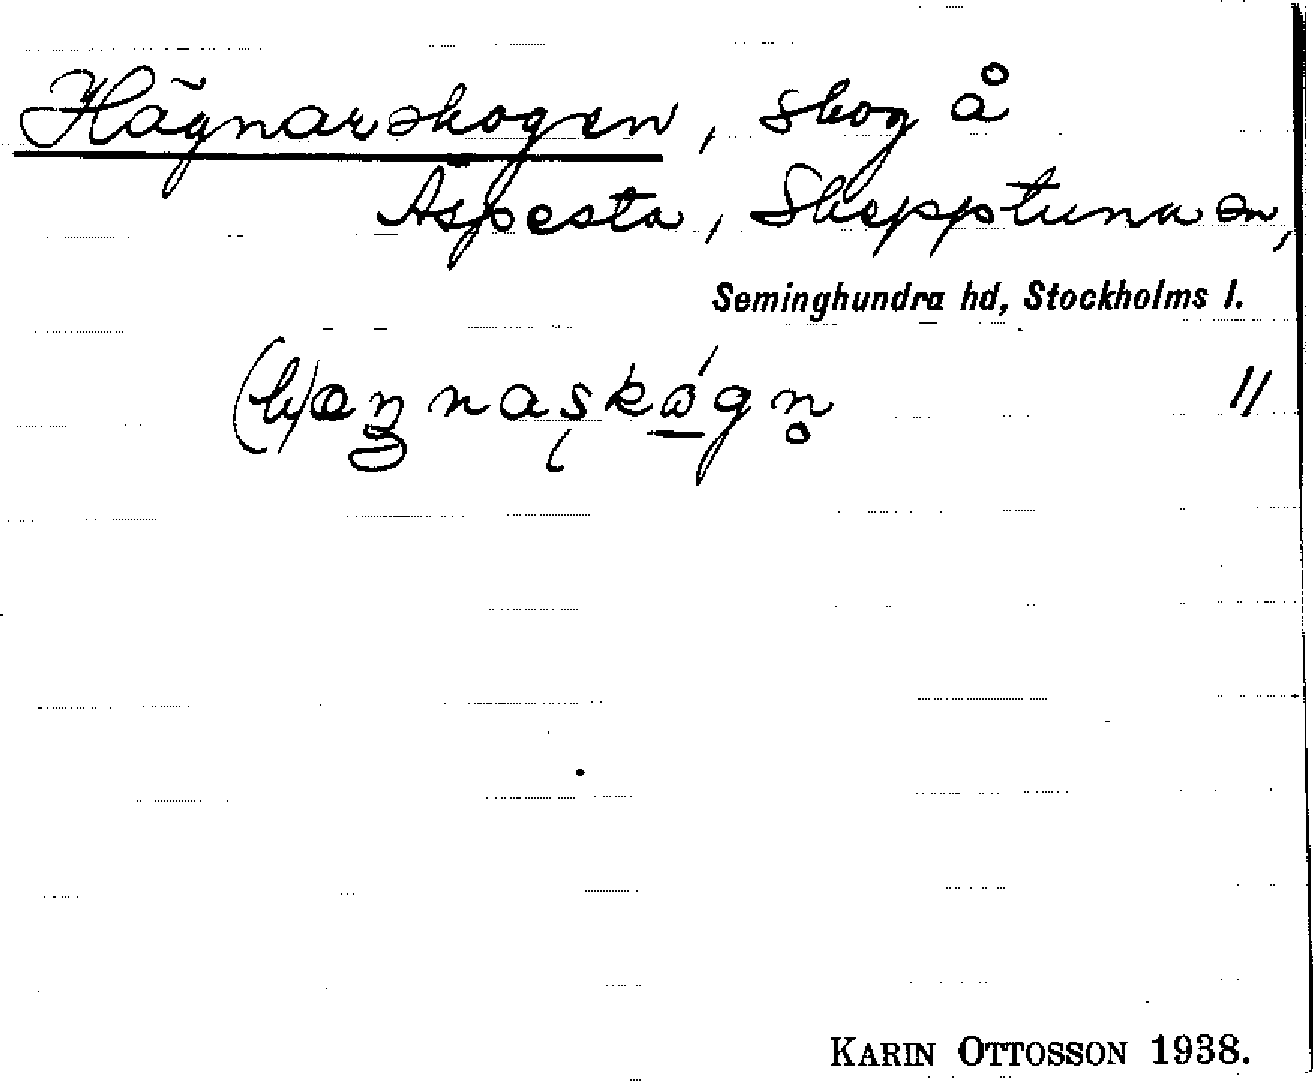 Hägnarskogen, skog å
Aspesta, Skepptuna sn,
Seminghundra hd, Stockholms l.
//
KARIN OTTOSSON 1938.